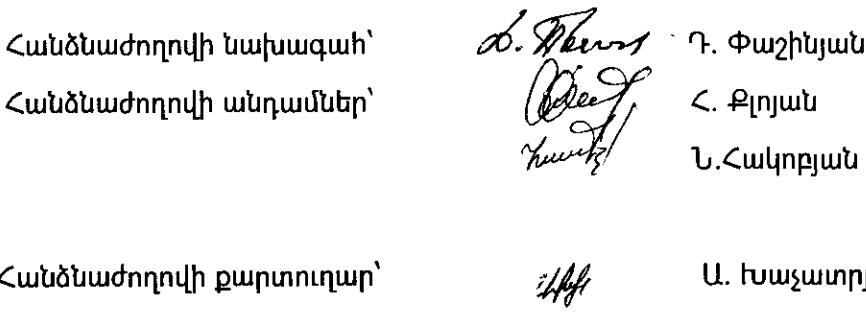 Հանձնաժողովի նախագահ՝ Դ. Փաշինյան
Հանձնաժողովի անդամներ՝ Հ. Քլոյան
Ն.Հակոբյան
Հանձնաժողովի քարտուղար՝ Ա. Խաչատրյ